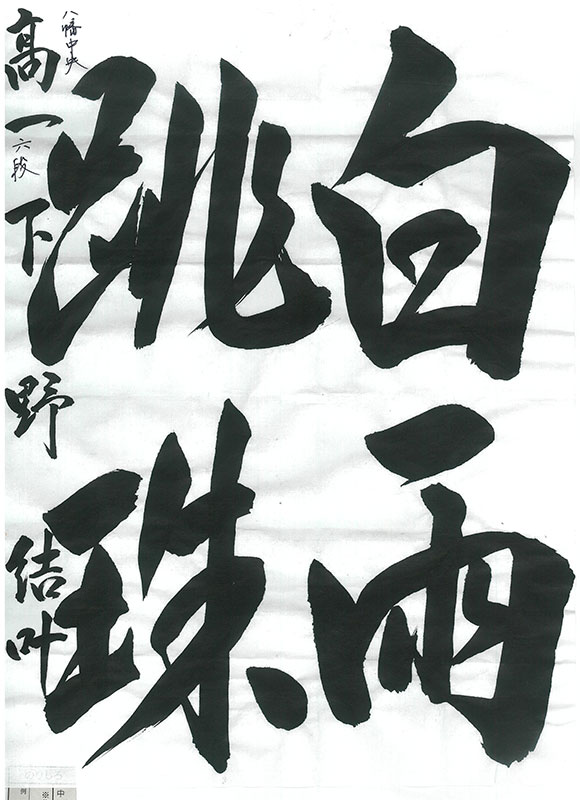 白雨
跳珠
八幡中央
高一 六段 下野結叶
中
※